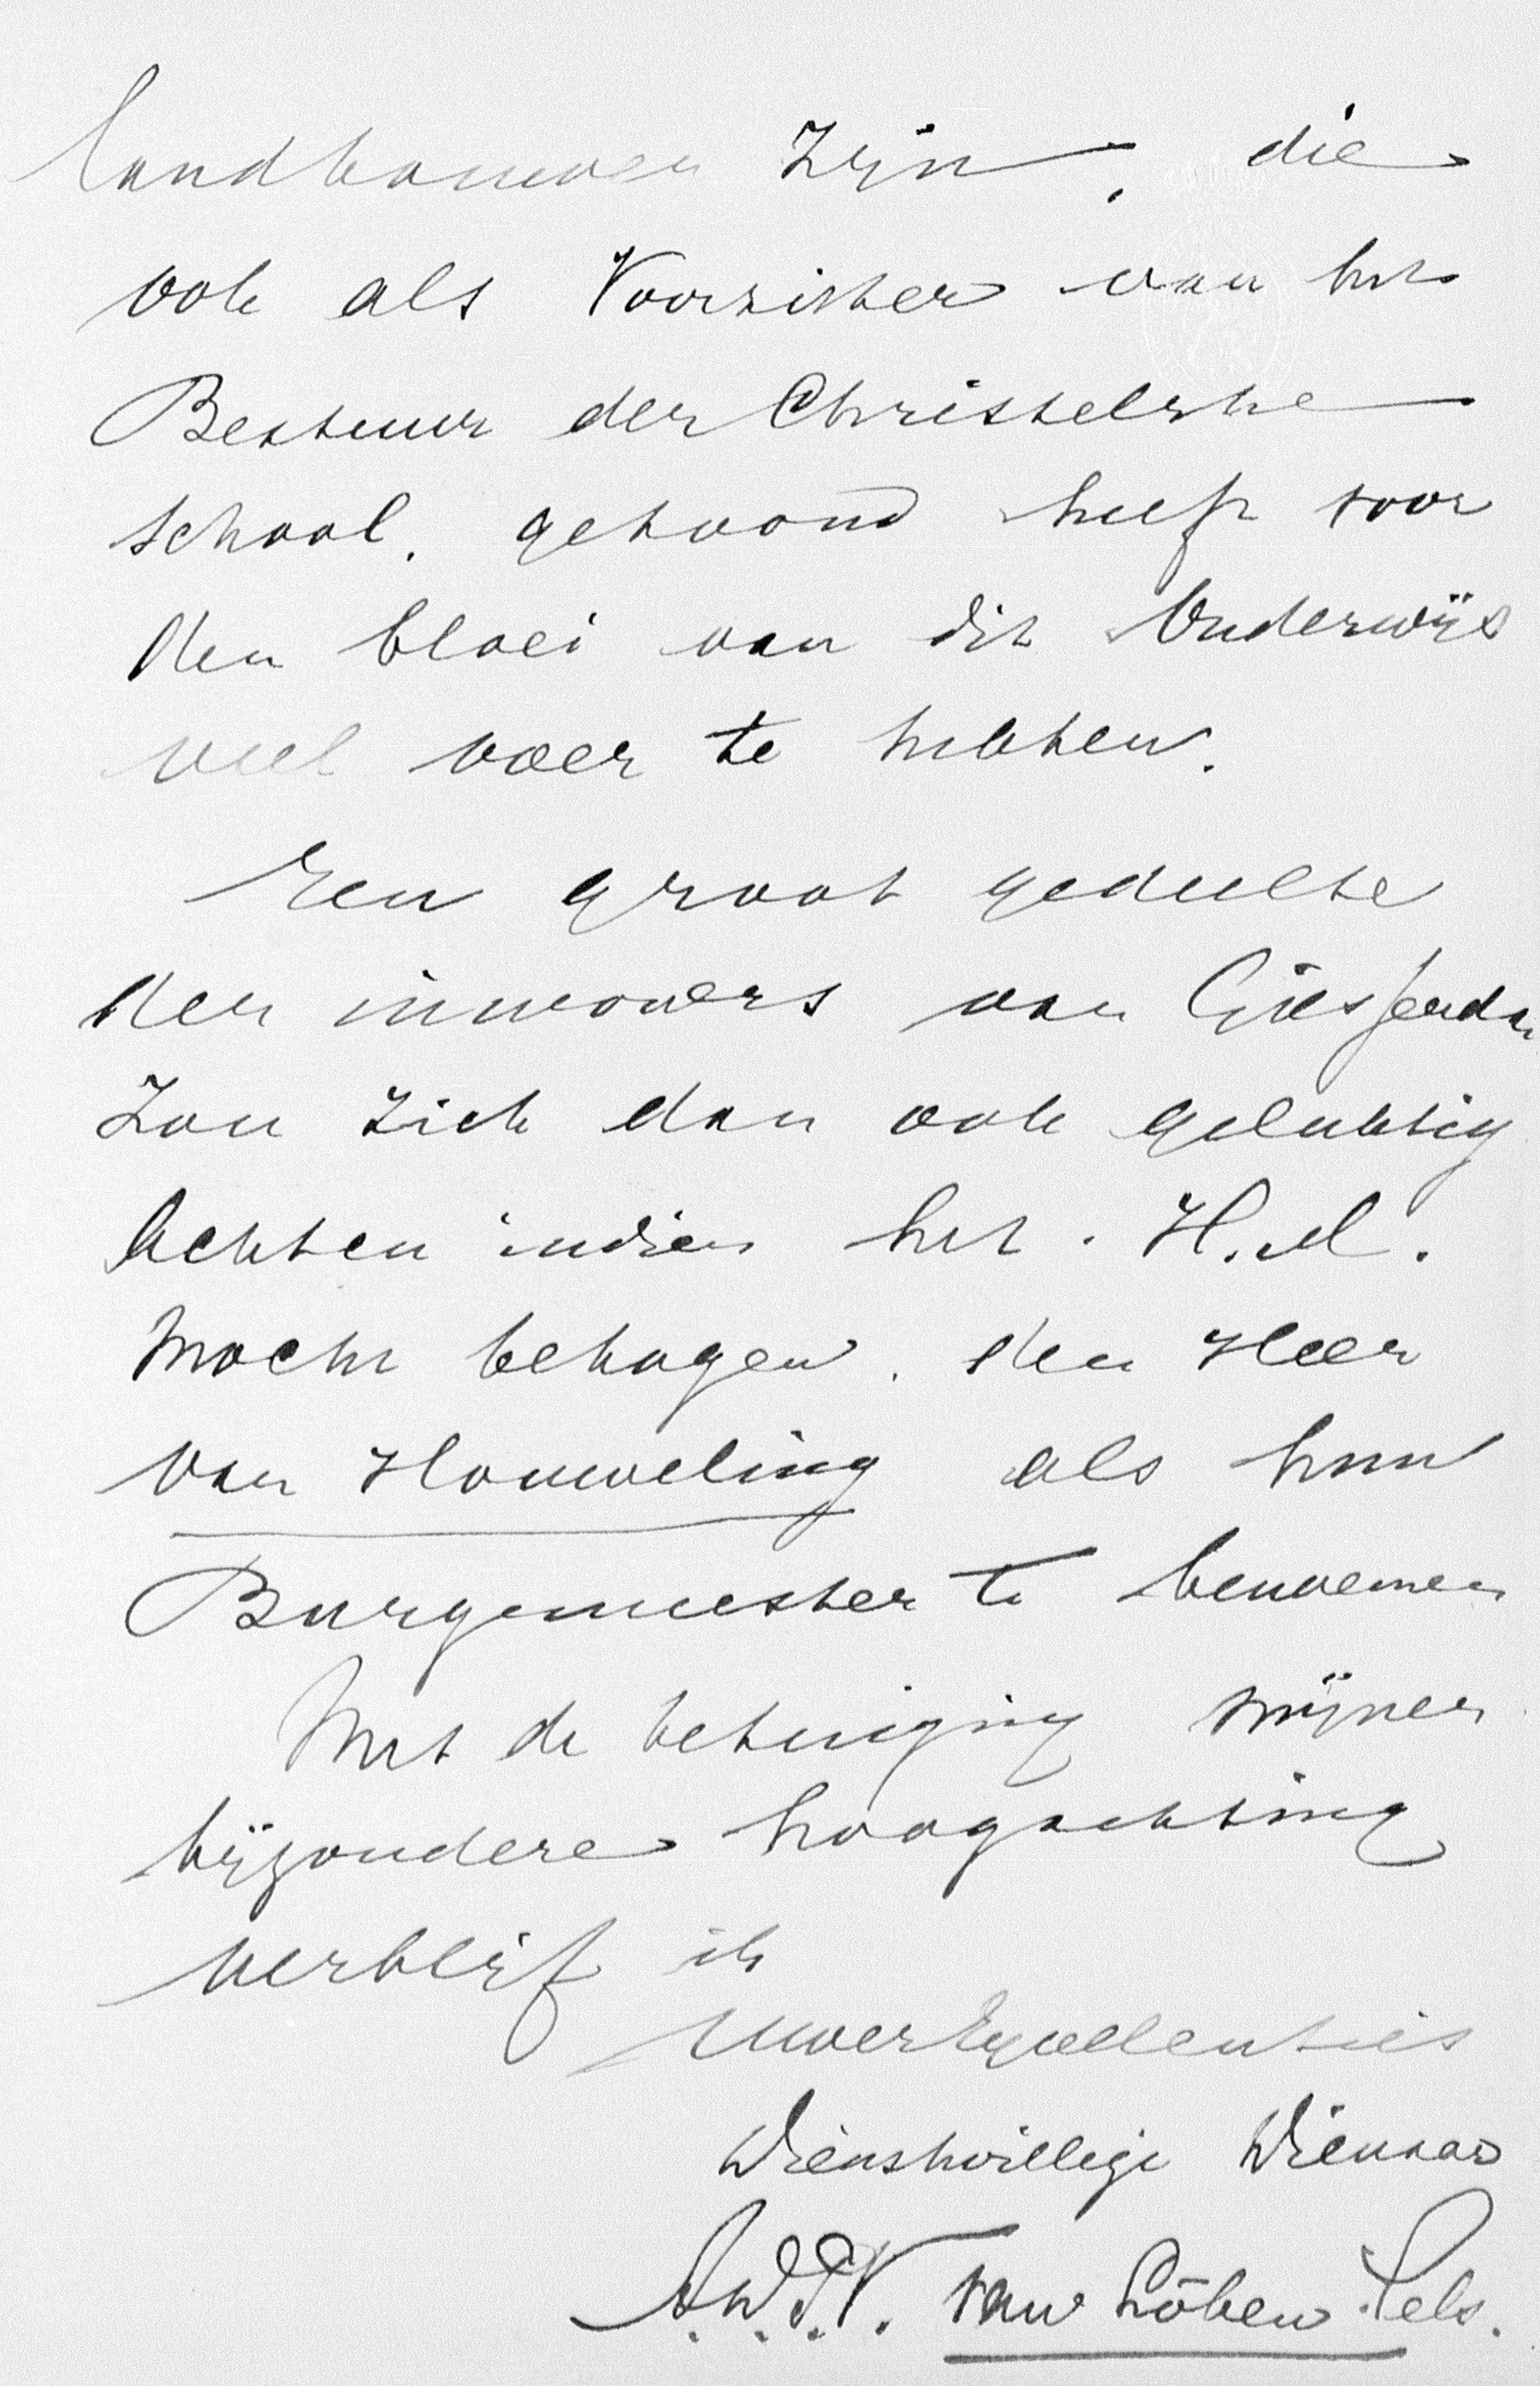 landbouwer zijn, die
ook als Voorzitter van het
Bestuur der Christelijke
school. getoond heeft voor
den bloei van dit Onderwijs
veel over te hebben.
Een groot gedeelte
der inwoners van Giessendam
Zou zich dan ook gelukkig
achten indien het. H.M.
Mocht behagen. den Heer
van Houweling als hun
Burgemeester te benoemen
Met de betuiging mijner
bijzondere hoogachting
verblijf ik
Uwer Excellenties
Dienstwillige Dienaar
van Löben Sels.